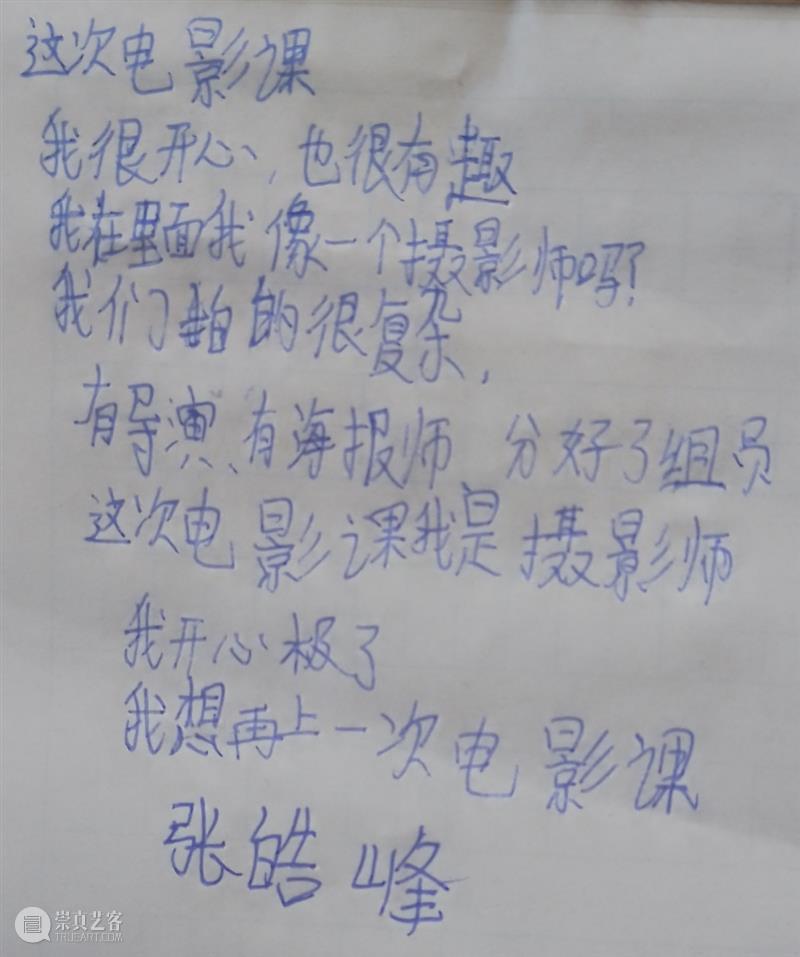 这次电影课
我很开心,也很有趣
我在里面我像一个摄影师吗?
我们拍的很复杂,
有导演、有海报师 分好了组员
这次电影课我是摄影师
我开心极了
我想再上一次电影课
张皓峰
崇真艺客
TRUEART.COM